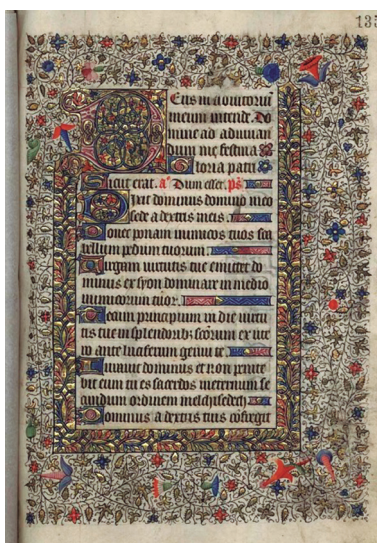 135
Deus in adiutoriu
meum intende. Do
mine ad adiuuan
dum me festina
Gloria patri
Sicut erat. a͞ Dum esset. ps̄
Dixit dominus domino meo
sede a dextris meis.
Donec ponam inimicos tuos sca
bellum pedum tuorum.
Uirgam uirtutis tue emittet do
minus ex syon dominare in medio
inimicorum tuor.
Tecum principium in die uirtu
tis tue in splendorib; sc̄orum ex ute
ro ante luciferum genui te
Iurauit dominus et non penite
bit eum tu es sacerdos in eternum se
cundum ordinem melchisedech
Dominus a dextris tuis cōfregit